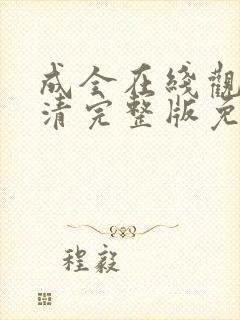 成全在綫觀
清完整版免
程毅